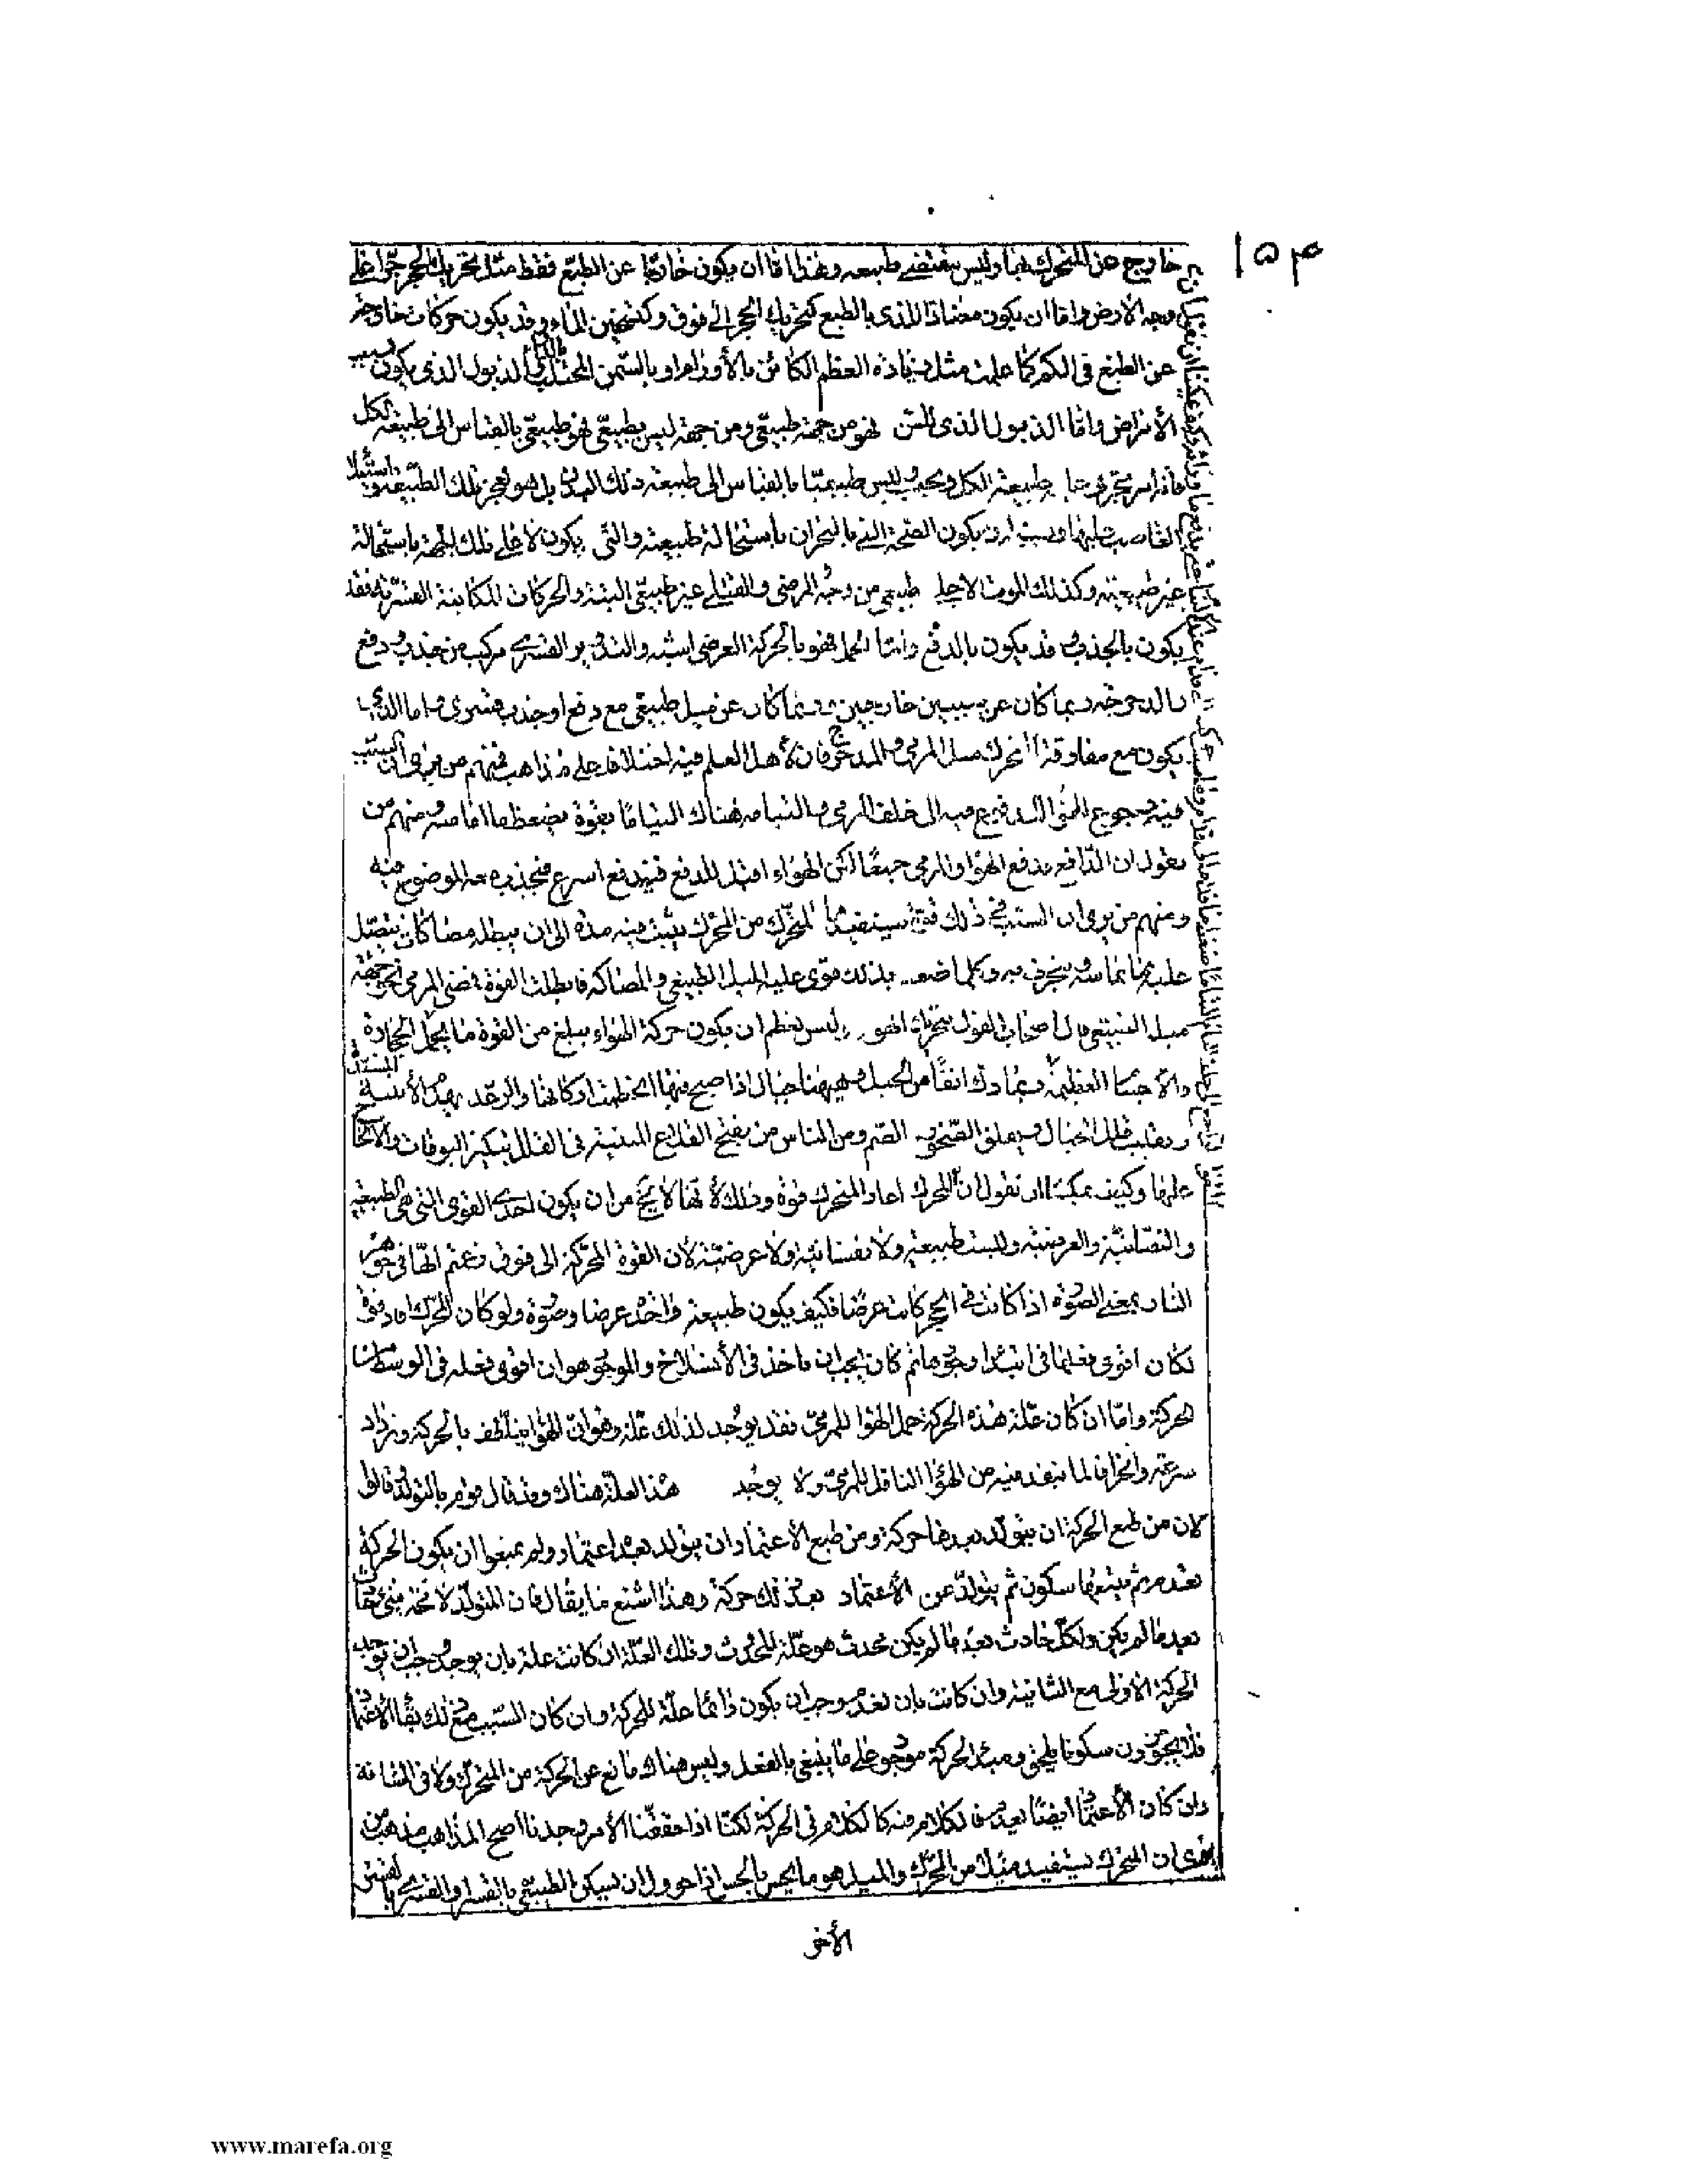 ١٥٤
خارج عن المتحرك بها وليس بمقتضى طبيعه وهذا اما ان يكون خارجا عن الطبع فقط مثل تحريك الحجر جرا على
وجه الارض واما ان يكون مضادا للذى بالطبع كتحريك الحجر الى فوق وكتسخين الماء وقد يكون حركات خارجة
عن الطبع فى الكم كما علمت مثل زيادة العظم الكائن بالأورام او بالسمن المجتلب الذبول الذى يكون بسبب
الأمراض واما الذبول الذى للسن فهو من جهة طبيعى ومن جهة ليس بطبيعى فهو طبيعى بالقياس الى طبيعة الكل
فانه امر تجرى طبيعة الكل ويجب ليس طبيعيا بالقياس الى طبيعة ذلك البدن بل هو لعجز تلك الطبيعة واستيلاء
يكون الصحة التى بالبحران باستحالة طبيعية والتى يكون لا على تلك الجهة باستحالة
غير طبيعية وكذلك الموت الاجلى طبيعى من وجه المرضى والقتلى غير طبيعى البتة والحركات المكانية القسرية فقد
يكون بالجذب وقد يكون بالدفع واما الحمل فهو بالحركة العرضى اشبه والتدوير القسرى مركب من جذب ودفع
والدحرجة ربما كان عن سببين خارجين وربما كان عن ميل طبيعى مع دفع او جذب قسرى واما الذى
يكون مع مفارقة المحرك مثل المرمى والمدحرج فان لأهل العلم فيه اختلافا على مذاهب فمنهم من يرى ان السبب
فيه رجوع الهواء المدفوع فيه الى خلف المرمى والتيامه هناك التياما بقوة يضغط ما امامه ومنهم من
يقول ان الدافع يدفع الهواء والمرمى جميعا لكن الهواء اقبل للدفع فيدفع اسرع فيجذب معه الموضوع فيه
ومنهم من يرى ان السبب فى ذلك قوة يستفيدها المتحرك من المحرك يثبت فيه مدة الى ان يبطله مصاكات يتصل
عليه مما يماسه وينخرق به وكلما ضعف بذلك قوى عليه الميل الطبيعى والمصاكة فابطلت القوة فمضى المرمى نحو جهة
ميله الطبيعى قال اصحاب القول بتحريك الهواء وليس بعظيم ان يكون حركة الهواء يبلغ من القوة ما يحمل الحجارة
والاجسام العظيمة وههنا جبال اذا صيح فيها والرعد يهد الأبنية المشيدة
ويقلب قلل الجبال ويفلق الصخور الصم ومن الناس من يفتح القلاع المبنية فى القلل بتكثير البوقات والالحاح
عليها وكيف يمكننا ان نقول ان المحرك اعاد المتحرك قوة وذلك لأنها لا يخ من ان يكون احدى القوى التى هى الطبيعية
والنفسانية والعرضية وليست طبيعية ولا نفسانية ولا عرضية لأن القوة المحركة الى فوق نعتم انها فى جوهر
النار بمعنى الصورة اذا كانت فى الحجر كانت عرضا فكيف يكون طبيعة واحدة عرضا وصورة ولو كان المحرك افاد قوة
لكان اقوى فعلها فى ابتداء وجودها ثم كان يجب ان ياخذ فى الأنسلاخ والموجود هو ان اقوى فعله فى الوسط من
الحركة واما ان كان علة هذه الحركة حمل الهواء للمرمى فقد يوجد لذلك علة وهو ان الهواء يتلطف بالحركة ويزداد
سرعة وانخراقا لما ينفذ فيه من الهواء الناقل للمرمى ولا يوجد هذه العلة هناك وقد قال قوم بالتولد قالوا
لان من طبع الحركة ان يتولد بعدها حركة ومن طبع الأعتماد ان يتولد بعده اعتماد ولم يمنعوا ان يكون الحركة
تعدم ثم يتبعها سكون ثم يتولد عن الأعتماد بعد ذلك حركة وهذا اشنع ما يقال فان المتولد لا محة شىء حادث
بعد ما لم يكن ولكل حادث بعد ما لم يكن محدث هو علة للحدوث وتلك العلة ان كانت علة بان يوجد وجب ان يوجد
الحركة الاولى مع الثانية وان كانت بان تعدم وجب ان يكون دائما علة للحركة وان كان السبب فى ذلك بقاء الأعتماد
فلم يجوزون سكونا يلحق ومبدء الحركة موجود على ما ينبغى بالفعل وليس هناك مانع عن الحركة من المتحرك ولا فى المسافة
وان كان الأعتماد ايضا يعدم فالكلام فيه كالكلام فى الحركة لكنا اذا حققنا الأمر وجدنا اصح المذاهب مذهب من
يرى ان المتحرك يستفيد ميلا من المحرك والميل هو ما يحس بالحس اذا حوول ان يسكن الطبيعى بالقسر او القسرى بالقسر
الأخر
www.marefa.org